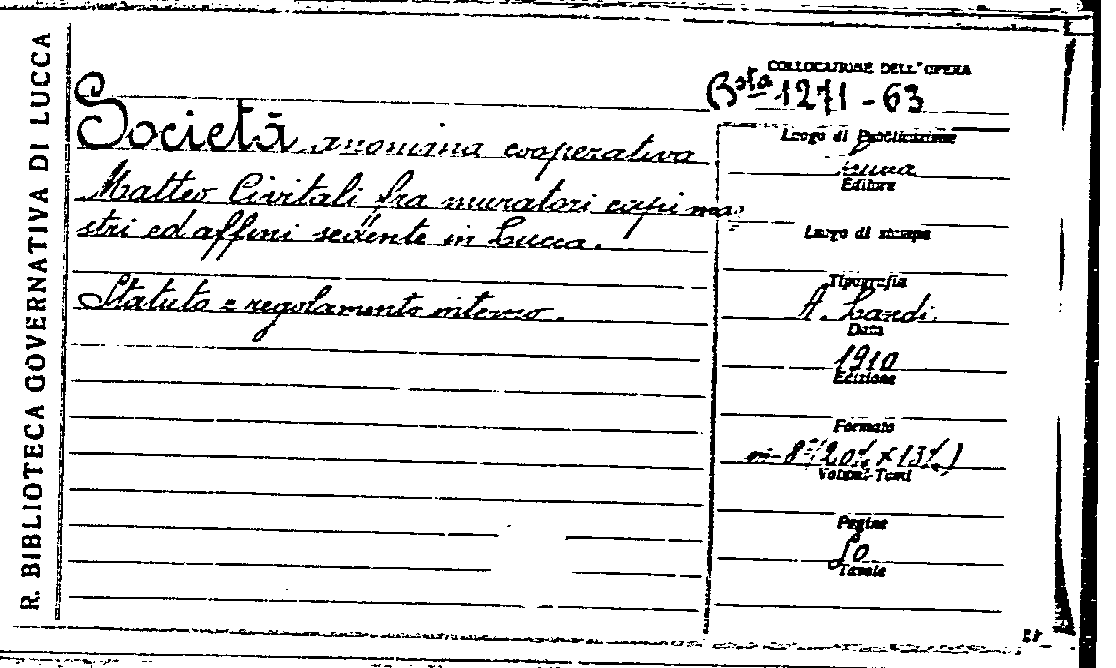 R. BIBLIOTECA GOVERNATIVA DI LUCCA
COLLOCAZIONE DELL'OPERA
Bsta 1271-63
Società anonima cooperativa
Matteo Civitali fra muratori capi ma-
stri ed affini sedente in Lucca.
Statuto e regolamento interno.
Luogo di Pubblicazione
Lucca
Editore
Luogo di stampa
Tipografia
A. Landi.
Data
1910
Edizione
Formato
in-8° (20½ x 13½)
Volumi-Tomi
Pagine
50
Tavole